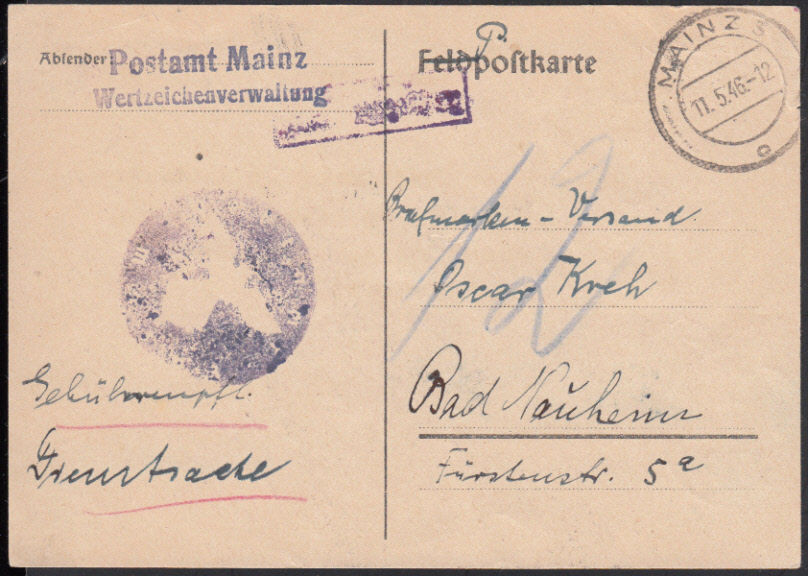 Absender
Postamt Mainz
Wertzeichenverwaltung
Feldpostkarte
P
MAINZ 5
11.5.46.-12
c
12
Briefmarken-Versand
Oscar Kreh
Bad Nauheim
Fürstenstr. 5a
Gebührenpfl.
Dienstsache